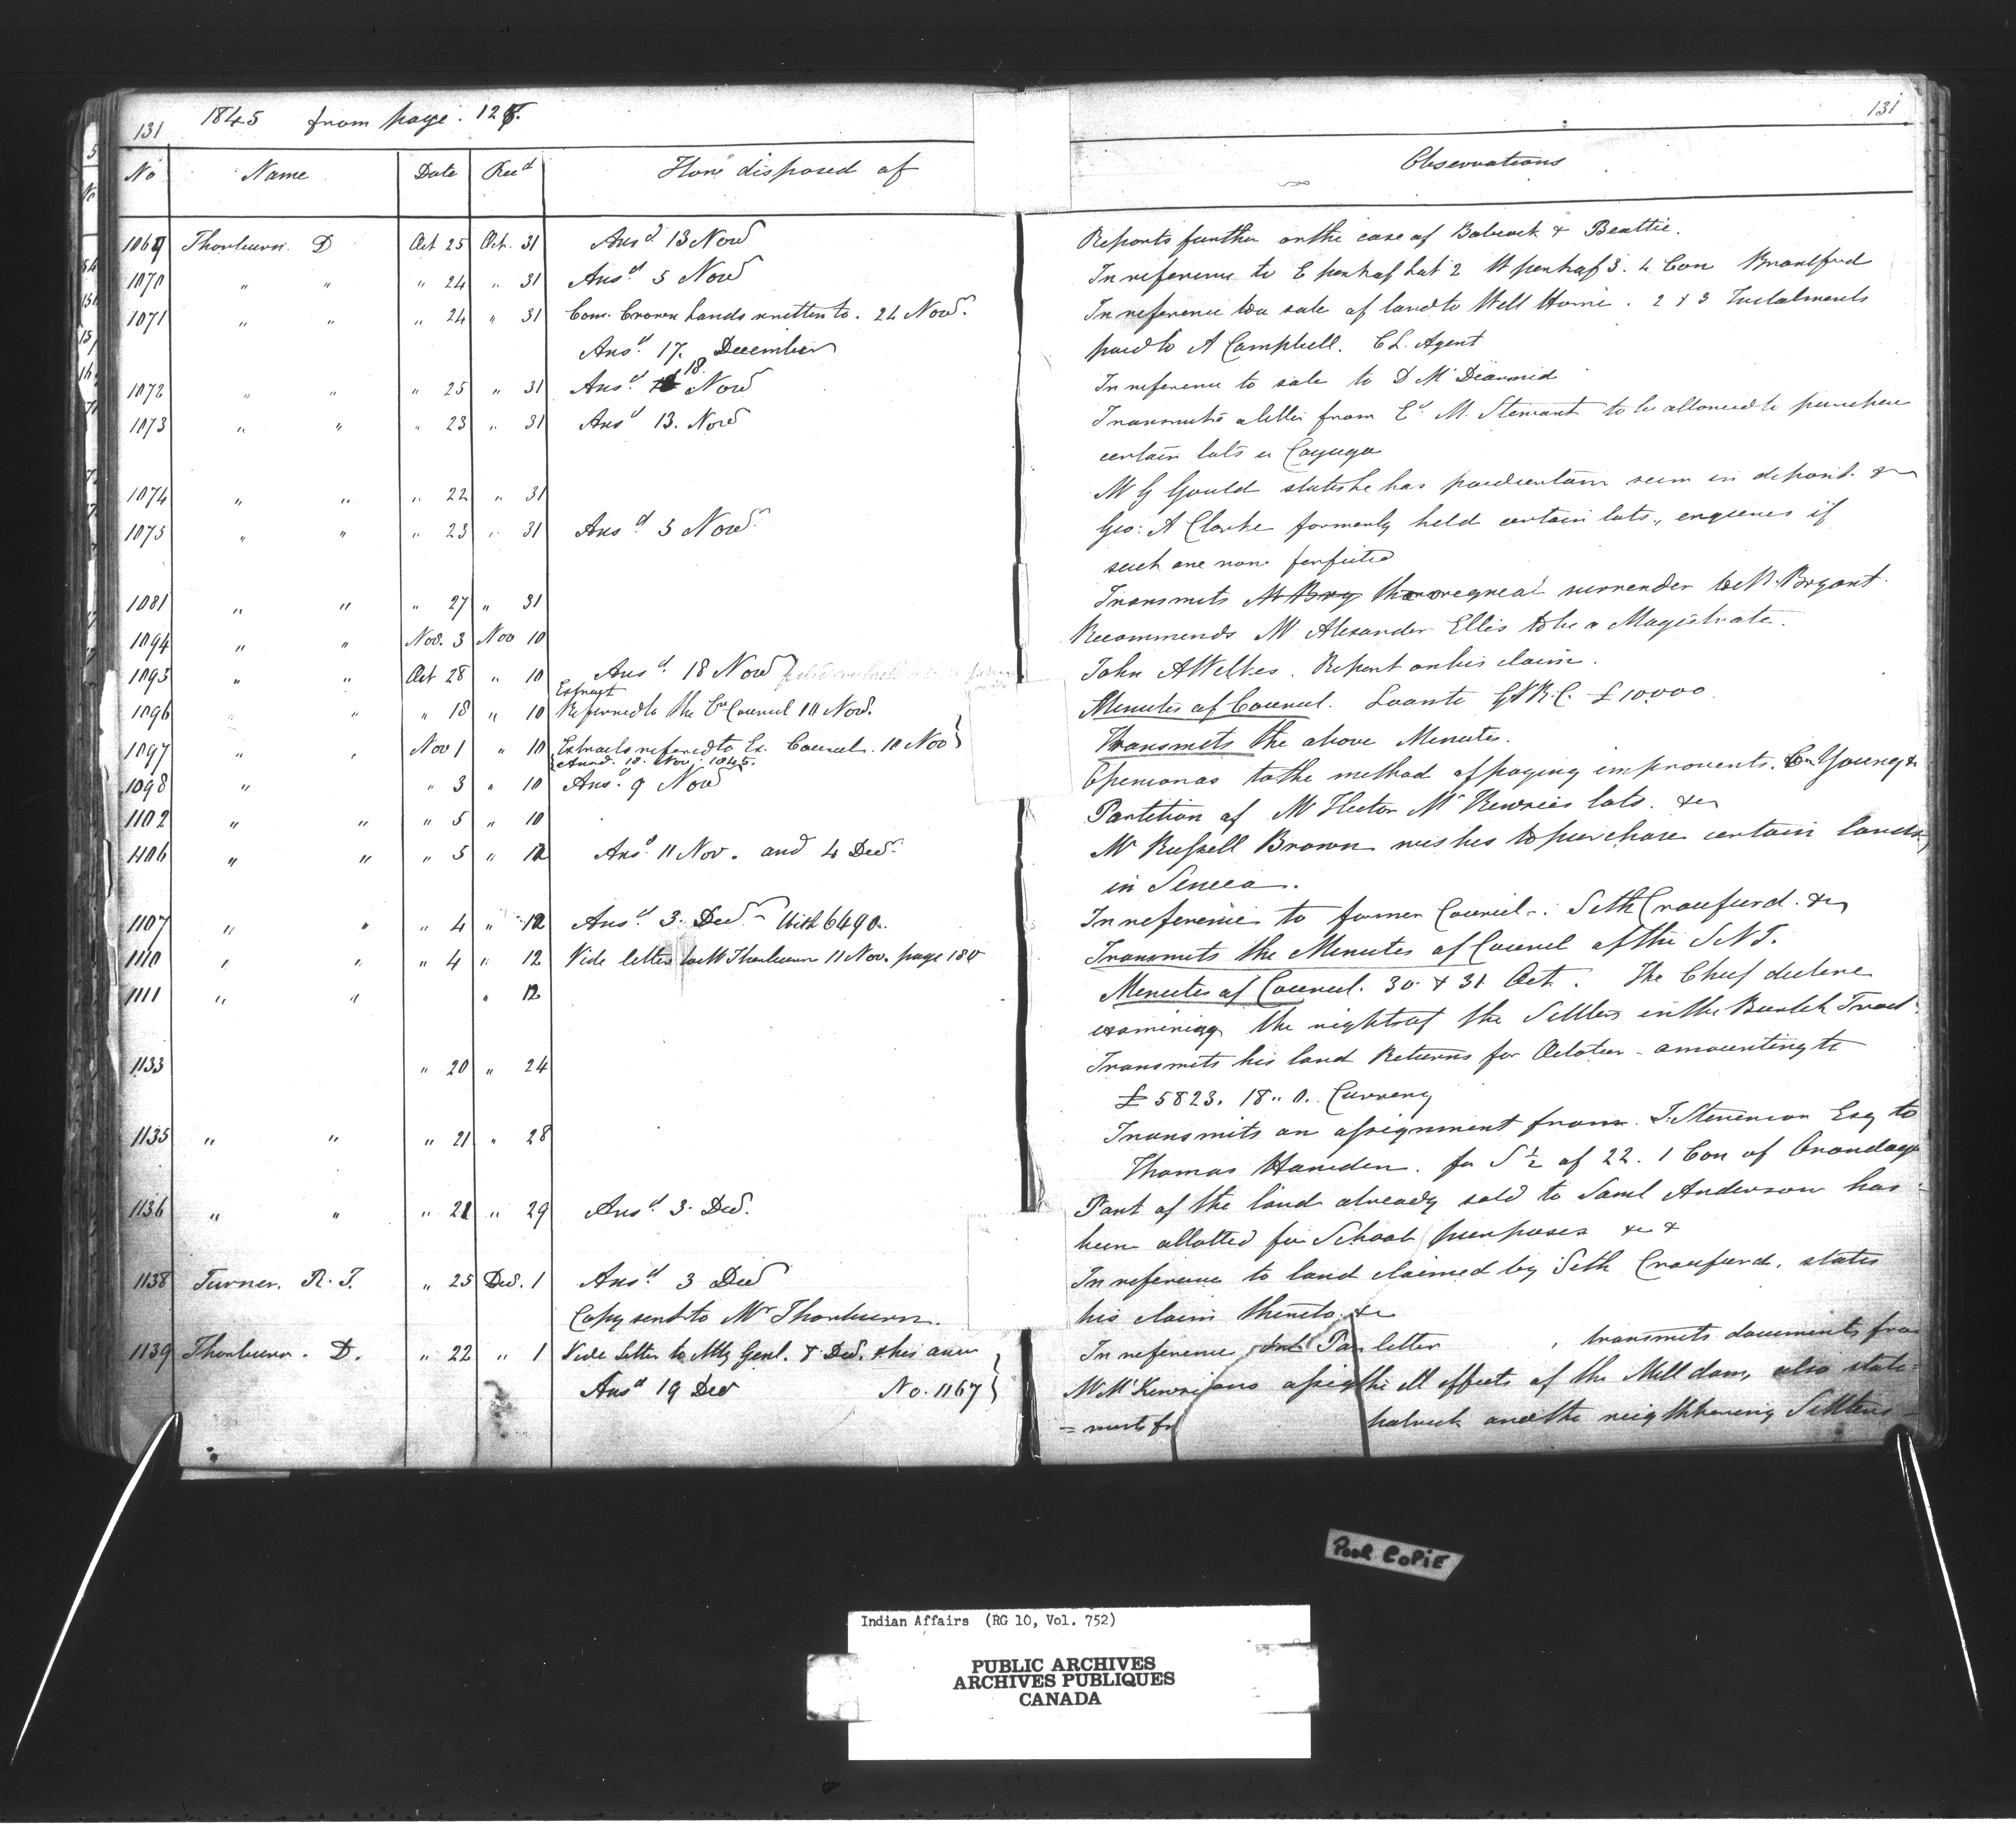 131 1845 from page. 128. 131
No Name Date Recd How disposed of Observations
1069 Thorburn D Oct 25 Oct. 31 Ansd 13 Nov Reports further on the case of Babcock & Beattie.
1070 " " " 24 " 31 Ansd 5 Nov In reference to E part half Lot 2 W part half 3. 4 Con Brantford
1071 " " " 24 " 31 Com. Crown Lands written to. 24 Nov. In reference to a sale of land to Will Horne. 2 & 3 Instalments
Ansd 17. December paid to A Campbell. C L. Agent
1072 " " " 25 " 31 Ansd 18. Nov In reference to sale to D McDearmid
1073 " " " 23 " 31 Ansd 13. Nov Transmits a letter from Ed M. Stewart to be allowed to purchase
certain lots in Cayuga
1074 " " " 22 " 31 Mr G Gould states he has paid certain sum in deposit. &c
1075 " " " 23 " 31 Ansd 5 Nov Geo: A Clarke formerly held certain lots, enquires if
such are now forfeited
1081 " " " 27 " 31 Transmits Mr Bry the original surrender to P. Bryant.
1094 " " Nov. 3 Nov 10 Recommends Mr Alexander Ellis to be a Magistrate.
1095 " " Oct 28 " 10 Ansd 18 Nov John A Wilkes. Report on his claim.
1096 " " " 18 " 10 Extract Referred to the Ex Council 10 Nov. Minutes of Council. Loan to G R. C. £10000.
1097 " " Nov 1 " 10 Extracts referred to Ex. Council. 10 Nov } Transmits the above Minutes.
Answd. 18. Nov. 1845.
1098 " " 3 " 10 Ansd 9 Nov Opinion as to the method of paying improvents. Young &
1102 " " " 5 " 10 Partition of Mr Hector McKenzies lots. &c
1106 " " " 5 " 12 Ansd 11 Nov. and 4 Dec. Mr Russell Brown wishes to purchase certain lands
in Seneca.
1107 " " " 4 " 12 Ansd 3. Dec. With 6490. In reference to former Council: Seth Craufurd. &c
1110 " " " 4 " 12 Vide letter to Mr Thorburn 11 Nov. page 180 Transmits the Minutes of Council of the S N I.
1111 " " " 12 Minutes of Council. 30 & 31 Oct. The Chief decline
examining the rights of the Settlers in the Burtch Tract.
1133 " 20 " 24 Transmits his land Returns for October - amounting to
£5823. 18.. 0.. Currency
1135 " " " 21 " 28 Transmits an assignment from J. Stevenson Esq to
Thomas Hamden. for S ½ of 22. 1 Con of Onondaga
1136 " " " 21 " 29 Ansd 3. Dec. Part of the land already sold to Saml Anderson has
been allotted for School purposes &c &
1138 Turner. R. J. " 25 Dec. 1 Ansd 3 Dec In reference to land claimed by Seth Craufurd. states
Copy sent to Mr Thorburn. his claim thereto. &c
1139 Thorburn. D. " 22 " 1 Vide Letter to Atty Genl. 8 Dec. & his answ } In reference letter , transmits documents from
Ansd 19 Dec No. 1167 } Mr McKenzie the ill effects of the Mill dam, also state=
=ments and the neighbouring Settlers
POOR COPIE
Indian Affairs (RG 10, Vol. 752)
PUBLIC ARCHIVES
ARCHIVES PUBLIQUES
CANADA